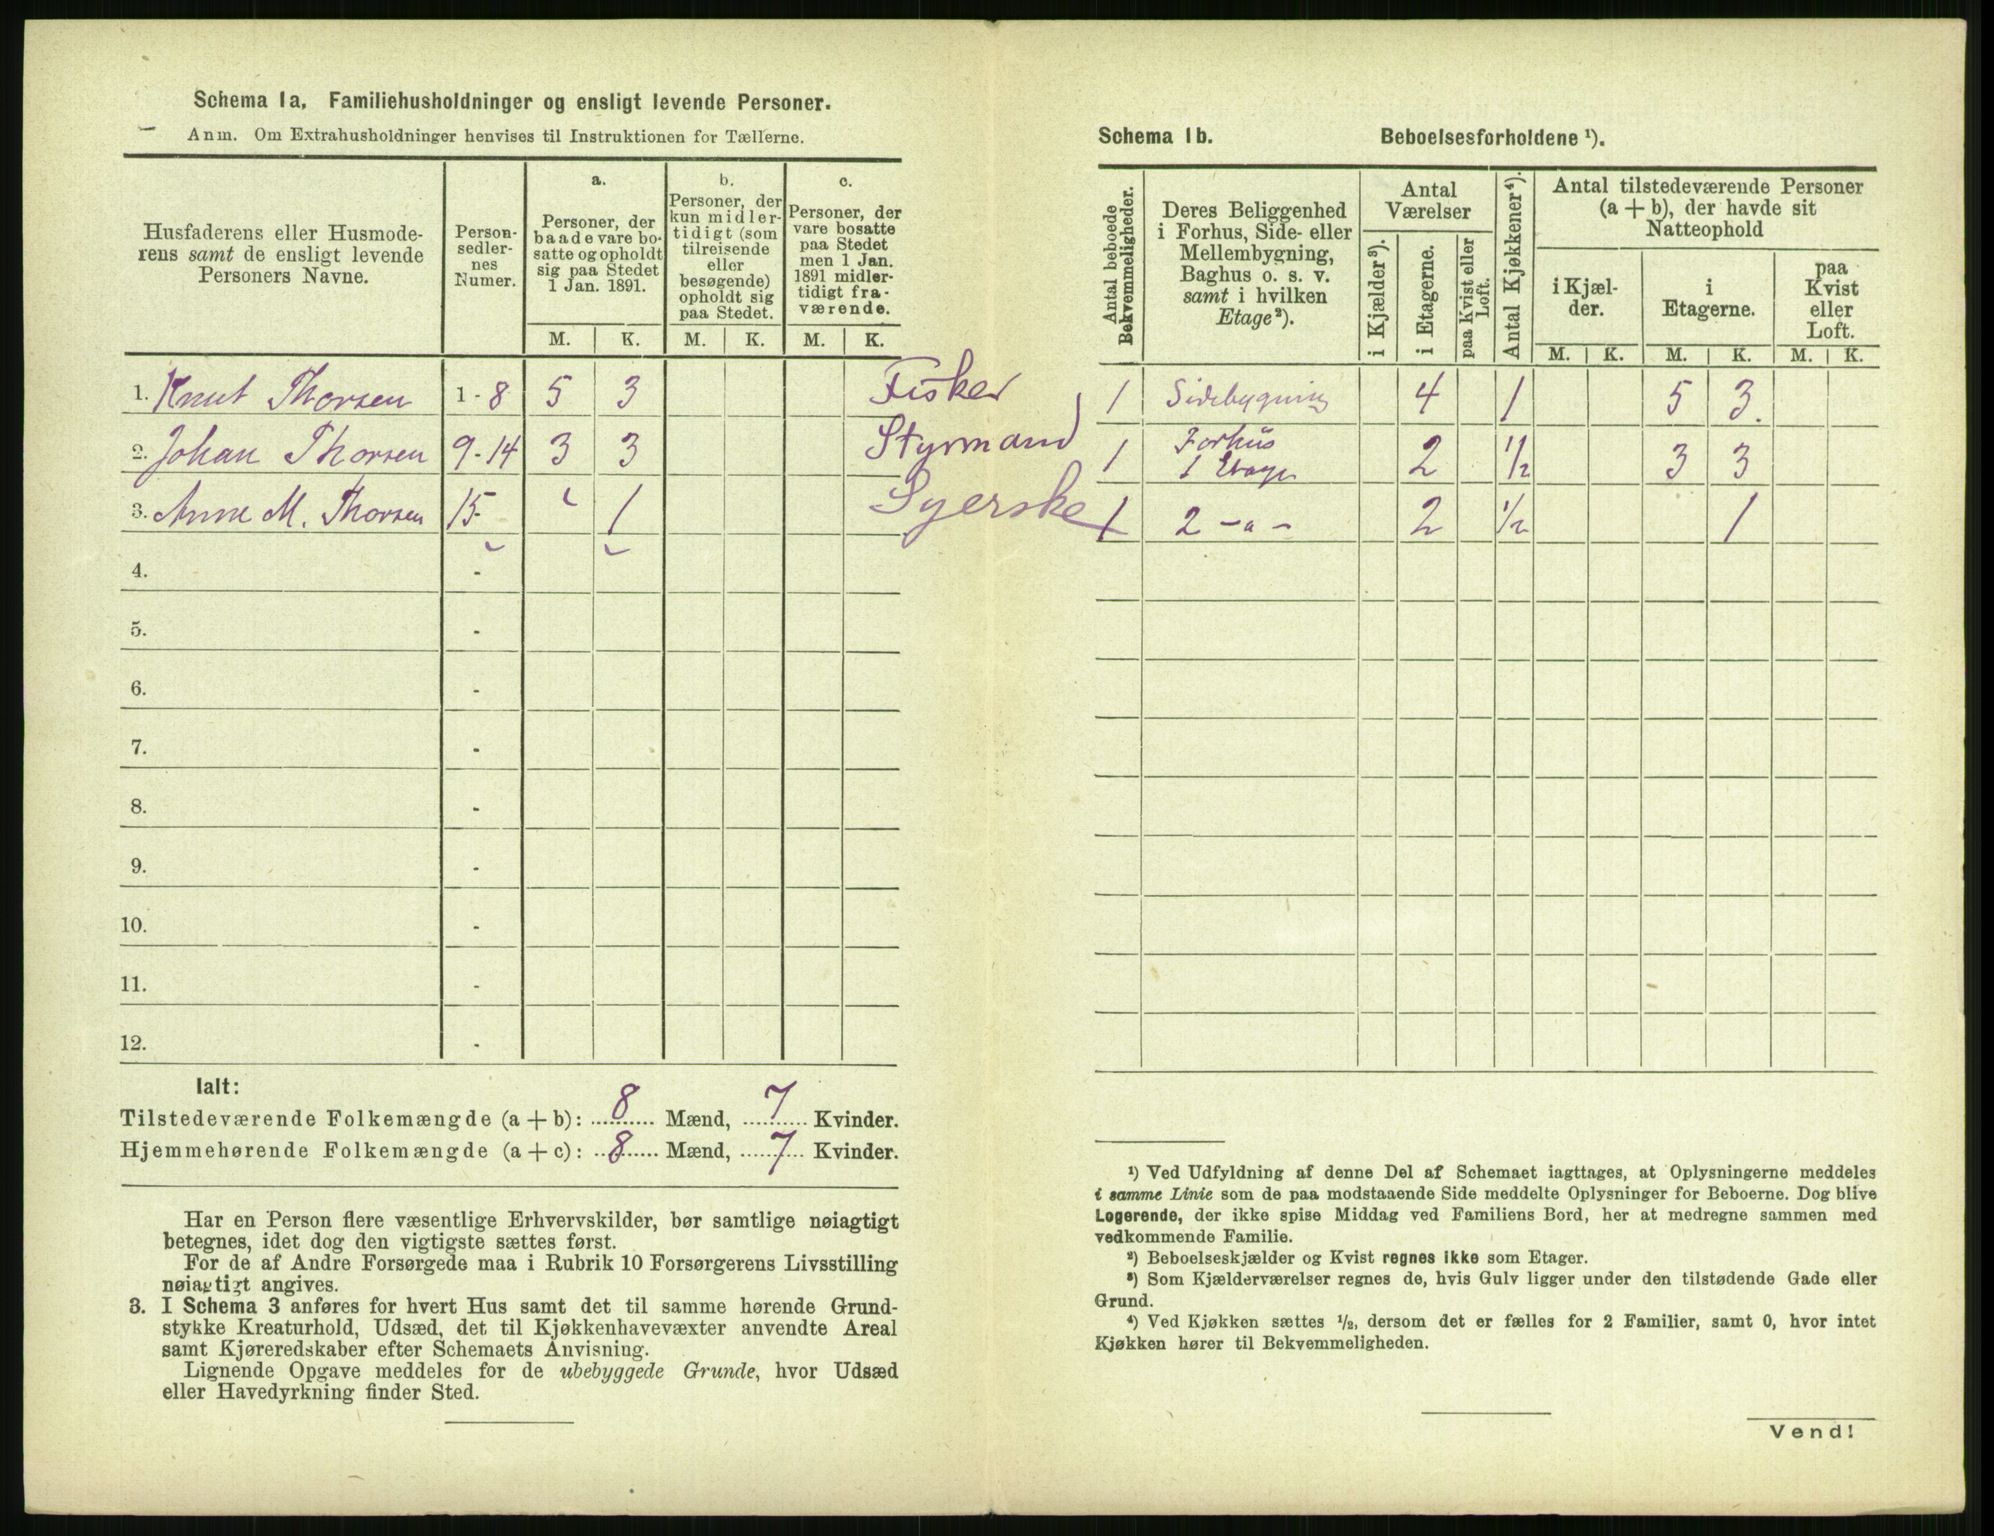 Schema 1a. Familiehusholdninger og ensligt levende Personer.
Anm. Om Extrahusholdninger henvises til Instruktionen for Tællerne.
Husfaderens eller Husmode-
rens samt de ensligt levende
Personers Navne.
Person-
sedler-
nes
Numer.
a.
Personer, der
baade vare bo-
satte og opholdt
sig paa Stedet
1 Jan. 1891.
M. K.
b.
Personer, der
kun midler-
tidigt (som
tilreisende
eller
besøgende)
opholdt sig
paa Stedet.
M. K.
c.
Personer, der
vare bosatte
paa Stedet
men 1 Jan.
1891 midler-
tidigt fra-
værende.
M. K.
1. Knut Thorsen 1 - 8 5 3 Fisker
2. Johan Thorsen 9 - 14 3 3 Styrmand
3. Anne M. Thorsen 15 - 1 Syerske
4. -
5. -
6. -
7. -
8. -
9. -
10. -
11. -
12. -
Ialt:
Tilstedeværende Folkemængde (a + b): 8 Mænd, 7 Kvinder.
Hjemmehørende Folkemængde (a + c): 8 Mænd, 7 Kvinder.
Har en Person flere væsentlige Erhvervskilder, bør samtlige nøiagtigt
betegnes, idet dog den vigtigste sættes først.
For de af Andre Forsørgede maa i Rubrik 10 Forsørgerens Livsstilling
nøiagtigt angives.
3. I Schema 3 anføres for hvert Hus samt det til samme hørende Grund-
stykke Kreaturhold, Udsæd, det til Kjøkkenhavevæxter anvendte Areal
samt Kjøreredskaber efter Schemaets Anvisning.
Lignende Opgave meddeles for de ubebyggede Grunde, hvor Udsæd
eller Havedyrkning finder Sted.
Schema 1b. Beboelsesforholdene ¹).
Antal beboede
Bekvemmeligheder.
Deres Beliggenhed
i Forhus, Side- eller
Mellembygning,
Baghus o. s. v.
samt i hvilken
Etage²).
Antal
Værelser
i Kjælder³).
i Etagerne.
paa Kvist eller
Loft.
Antal Kjøkkener⁴).
Antal tilstedeværende Personer
(a + b), der havde sit
Natteophold
i Kjæl-
der.
i
Etagerne.
paa
Kvist
eller
Loft.
M. K. M. K. M. K.
1 Sidebygning 4 1 5 3.
1 Forhus
1 Etage 2 1/2 3 3
1 2 - " - 2 1/2 1
¹) Ved Udfyldning af denne Del af Schemaet iagttages, at Oplysningerne meddeles
i samme Linie som de paa modstaaende Side meddelte Oplysninger for Beboerne. Dog blive
Logerende, der ikke spise Middag ved Familiens Bord, her at medregne sammen med
vedkommende Familie.
²) Beboelseskjælder og Kvist regnes ikke som Etager.
³) Som Kjælderværelser regnes de, hvis Gulv ligger under den tilstødende Gade eller
Grund.
⁴) Ved Kjøkken sættes ¹/₂, dersom det er fælles for 2 Familier, samt 0, hvor intet
Kjøkken hører til Bekvemmeligheden.
Vend!